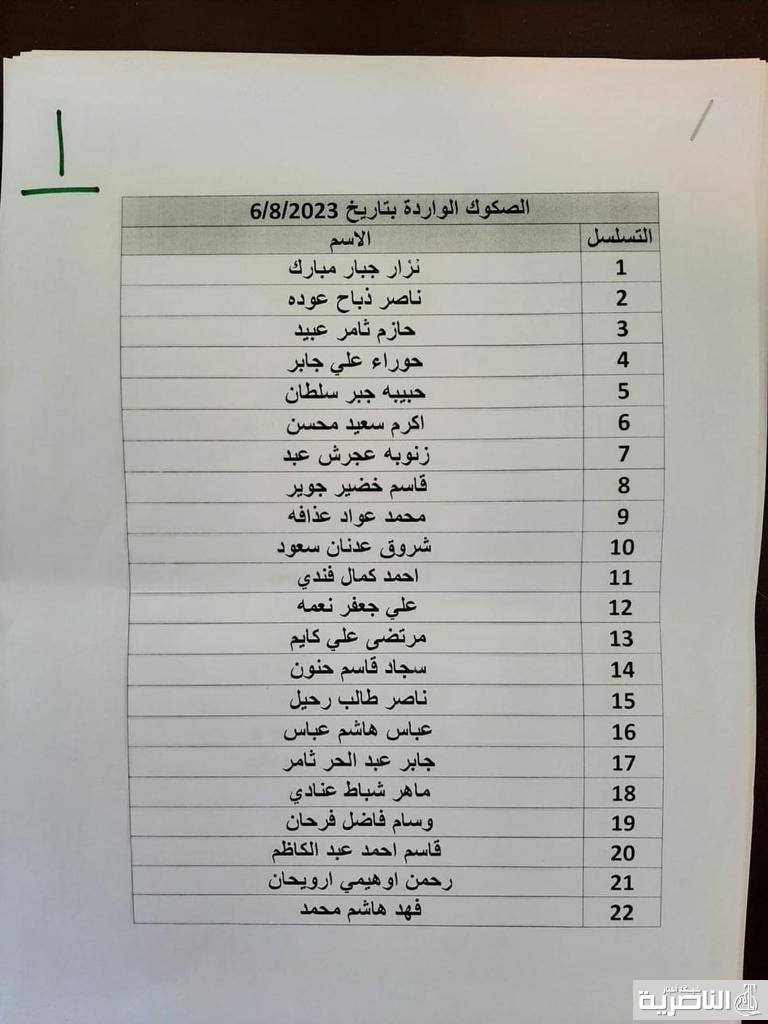 ١
الصكوك الواردة بتاريخ 6/8/2023
التسلسل الاسم
1 نزار جبار مبارك
2 ناصر ذباح عوده
3 حازم ثامر عبيد
4 حوراء علي جابر
5 حبيبه جبر سلطان
6 اكرم سعيد محسن
7 زنوبه عجرش عبد
8 قاسم خضير جوير
9 محمد عواد عذافه
10 شروق عدنان سعود
11 احمد كمال فندي
12 علي جعفر نعمه
13 مرتضى علي كايم
14 سجاد قاسم حنون
15 ناصر طالب رحيل
16 عباس هاشم عباس
17 جابر عبد الحر ثامر
18 ماهر شباط عنادي
19 وسام فاضل فرحان
20 قاسم احمد عبد الكاظم
21 رحمن اوهيمي ارويحان
22 فهد هاشم محمد
شبكة أخبار
الناصرية